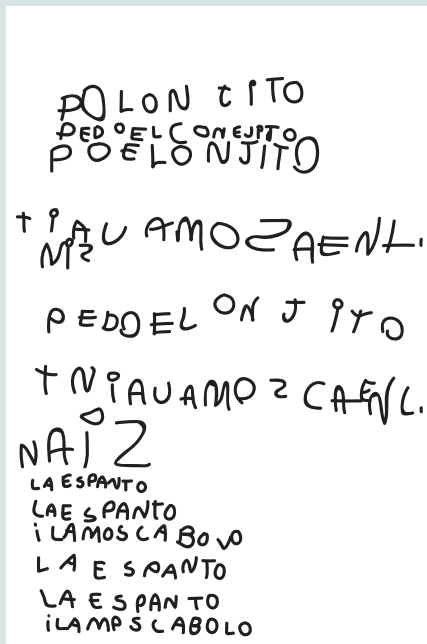 POLON CITO
PEDOELCONEJPTO
POELONJITO
TIAUAMOZAENL.
NIZ
PEDOEL ON J ITO
TNIAUAMOZ CAENL.
NAIZ
LA ESPANTO
LAE SPANTO
iLAMOSCABOVO
LA E SPANTO
LA ESPANTO
iLAMPSCABOLO